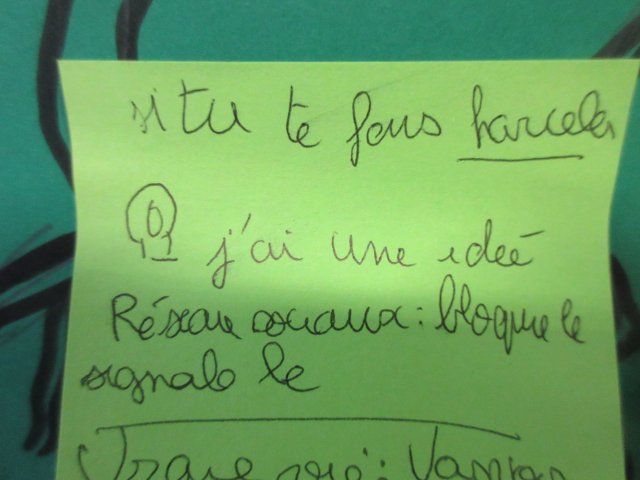 si tu te fais harceler
j'ai une idée
Réseau sociaux : bloque le
signale le